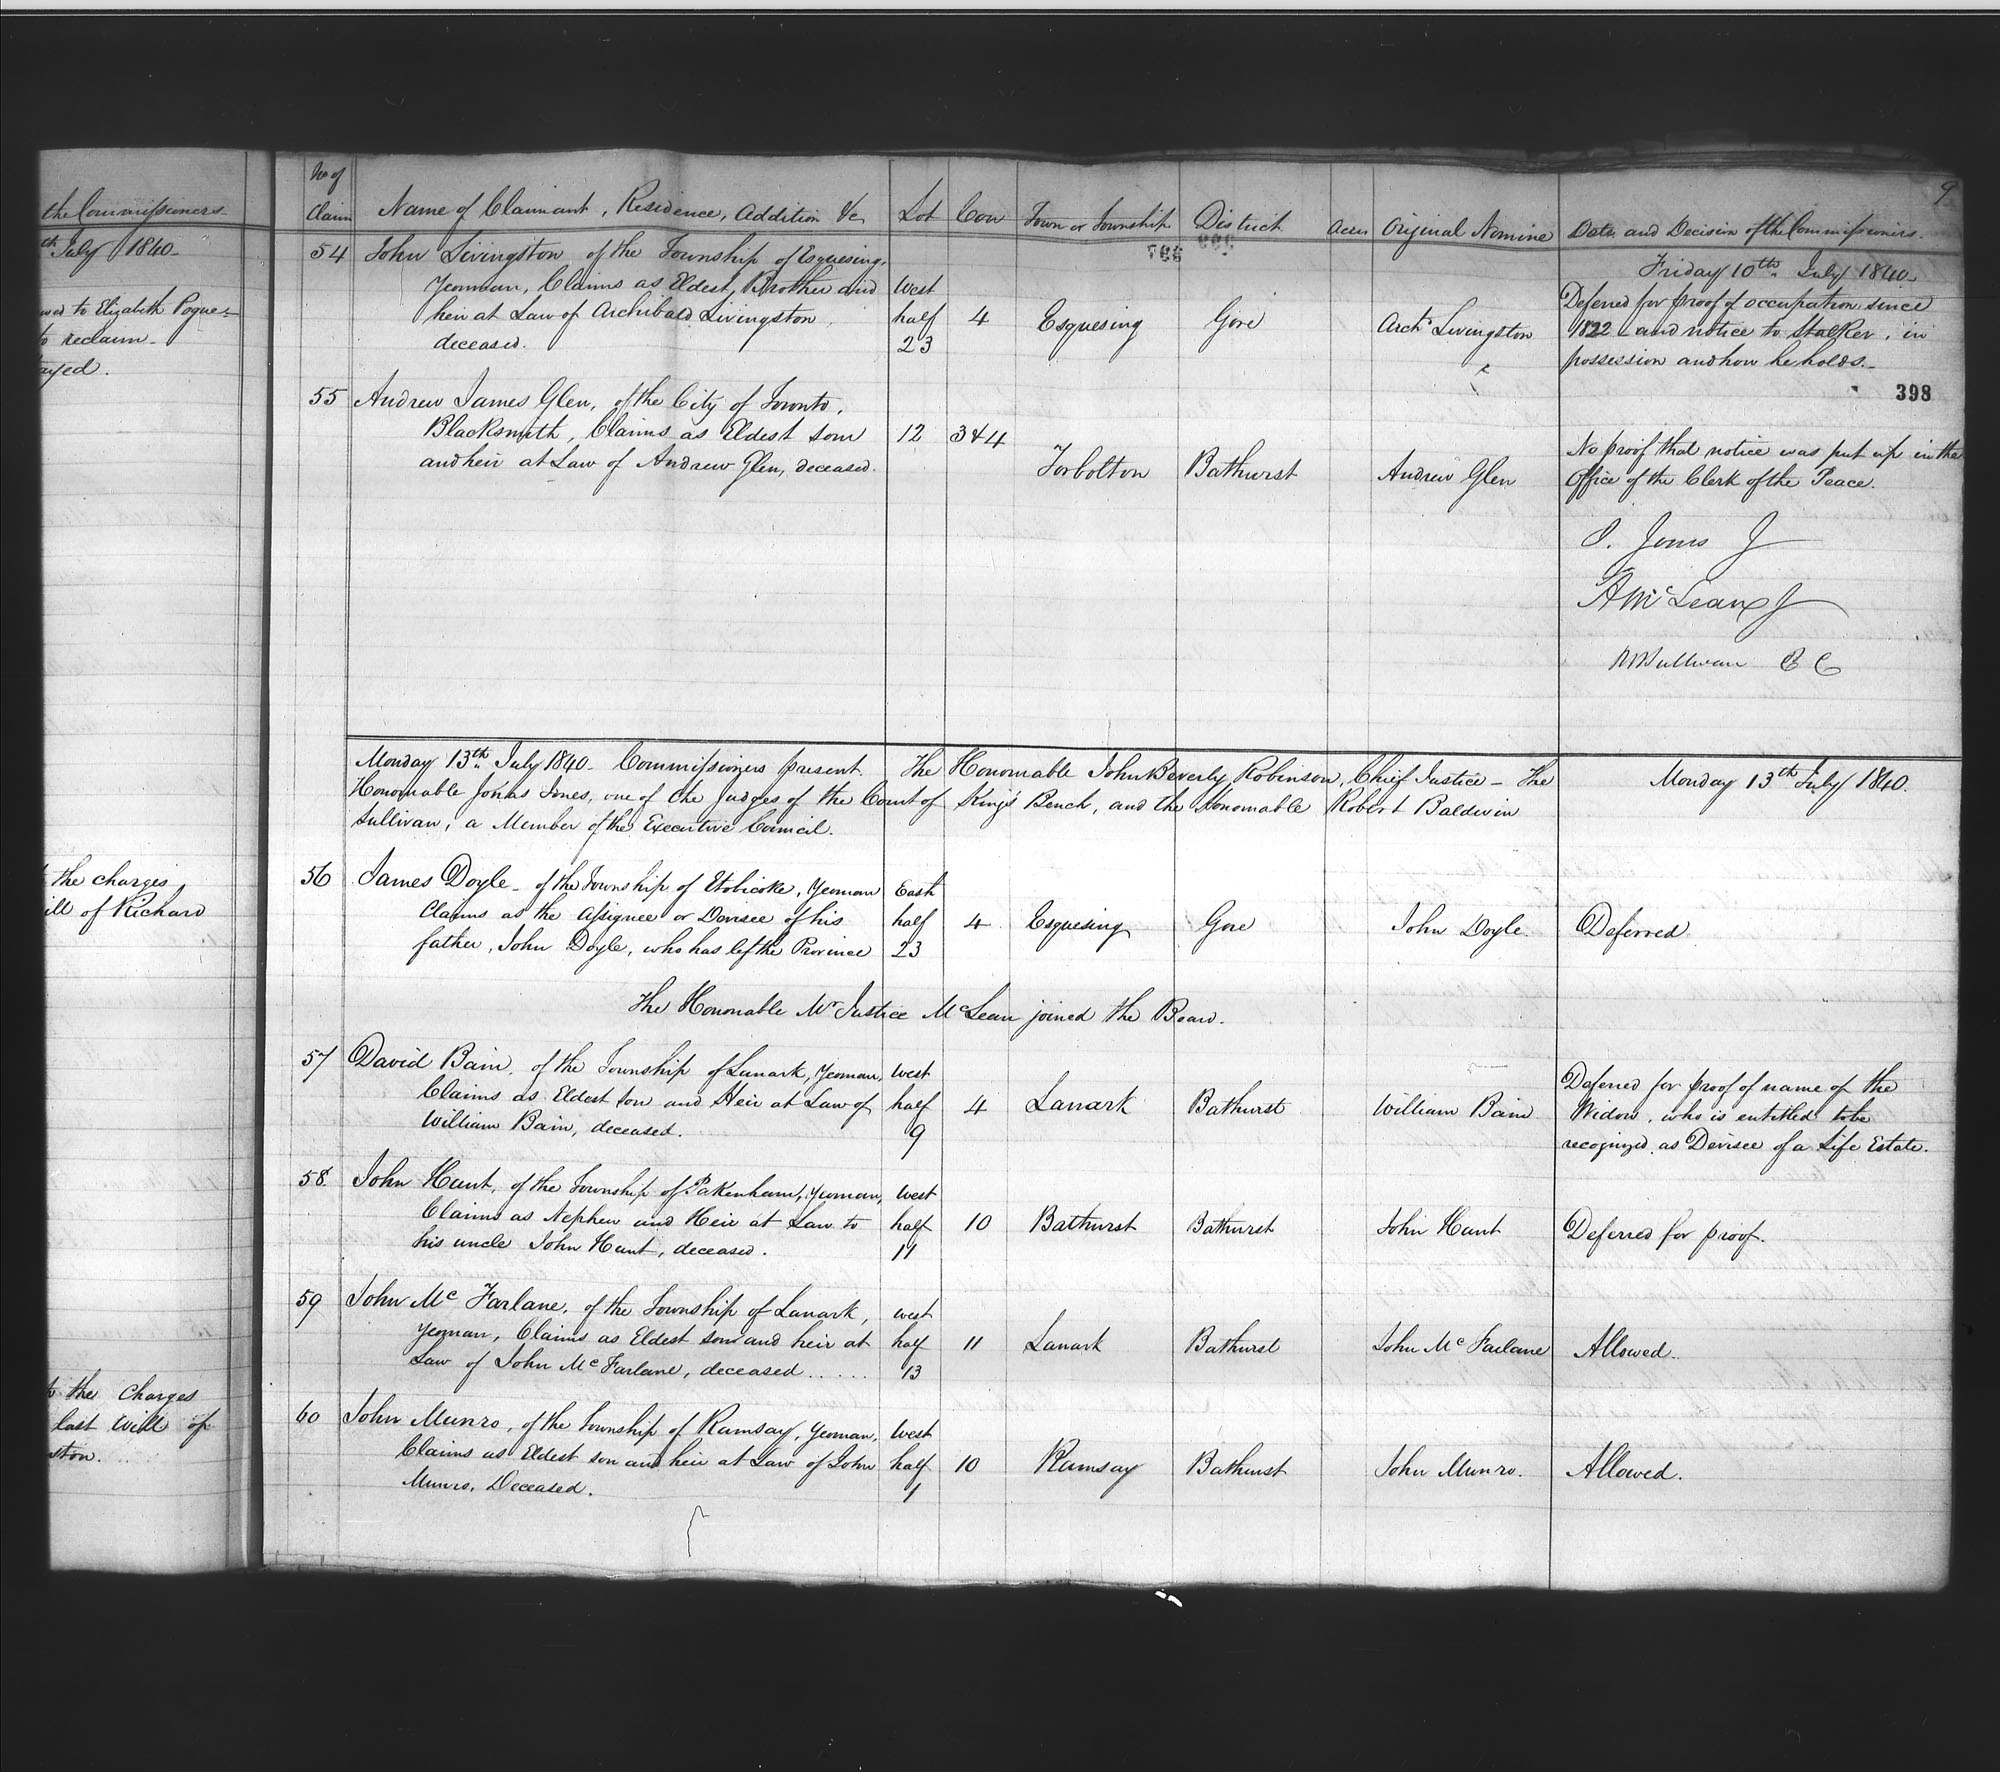 the Commissioners
th July 1840
wed to Elizabeth Pogue
to reclaim
ayed.
the charges
ill of Richard
to the Charges
last will of
ston.
9
No of
Claim Name of Claimant, Residence, Addition &c Lot Con Town or Township District Acres Original Nominee Date and Decision of the Commissioners
Friday 10th July 1840
54 John Livingston of the Township of Esquesing,
Yeoman, Claims as Eldest Brother and
heir at Law of Archibald Livingston,
deceased.
West
half
23
4 Esquesing Gore Archd Livingston
Deferred for proof of occupation since
1822 and notice to Stalker, in
possession and how he holds.
398
55 Andrew James Glen, of the City of Toronto,
Blacksmith, Claims as Eldest son
and heir at Law of Andrew Glen, deceased.
12 3 & 4 Torbolton Bathurst Andrew Glen
No proof that notice was put up in the
Office of the Clerk of the Peace.
J. Jones J
A McLean J
RBSullivan E C
Monday 13th July 1840 Commissioners present The Honourable John Beverly Robinson, Chief Justice - The
Honourable Jonas Jones, one of the Judges of the Court of King's Bench, and the Honourable Robert Baldwin
Sullivan, a Member of the Executive Council.
Monday 13th July 1840.
56 James Doyle of the Township of Etobicoke, Yeoman
Claims as the Assignee or Devisee of his
father, John Doyle, who has left the Province
East
half
23
4 Esquesing Gore John Doyle Deferred
The Honourable Mr Justice McLean joined the Board.
57 David Bain, of the Township of Lanark, Yeoman,
Claims as Eldest son and Heir at Law of
William Bain, deceased.
West
half
9
4 Lanark Bathurst William Bain
Deferred for proof of name of the
Widow, who is entitled to be
recognized as Devisee of a Life Estate.
58 John Hunt, of the Township of Pakenham, Yeoman,
Claims as Nephew and Heir at Law to
his uncle John Hunt, deceased.
West
half
11
10 Bathurst Bathurst John Hunt Deferred for proof.
59 John Mc Farlane, of the Township of Lanark,
Yeoman, Claims as Eldest son and heir at
Law of John Mc Farlane, deceased .....
West
half
13
11 Lanark Bathurst John Mc Farlane Allowed.
60 John Munro, of the Township of Ramsay, Yeoman,
Claims as Eldest son and heir at Law of John
Munro, Deceased.
West
half
1
10 Ramsay Bathurst John Munro. Allowed.